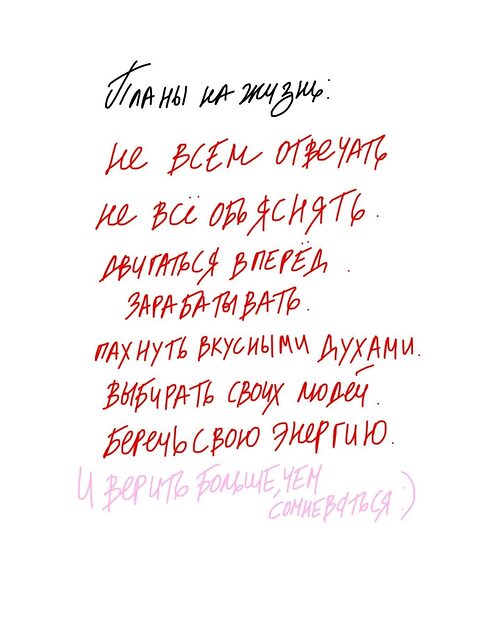 Планы на жизнь:
не всем отвечать
не всё объяснять.
двигаться вперёд.
зарабатывать.
пахнуть вкусными духами.
выбирать своих людей.
беречь свою энергию.
и верить больше, чем
сомневаться :)